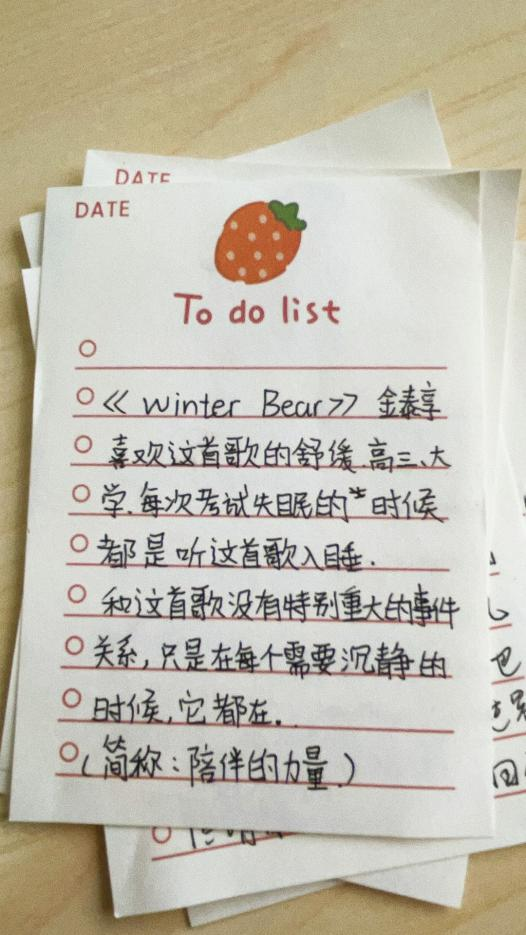 DATE
DATE
To do list
《Winter Bear》 金泰亨
喜欢这首歌的舒缓.高三、大
学.每次考试失眠的时候
都是听这首歌入睡.
和这首歌没有特别重大的事件
关系,只是在每个需要沉静的
时候,它都在.
(简称:陪伴的力量.)